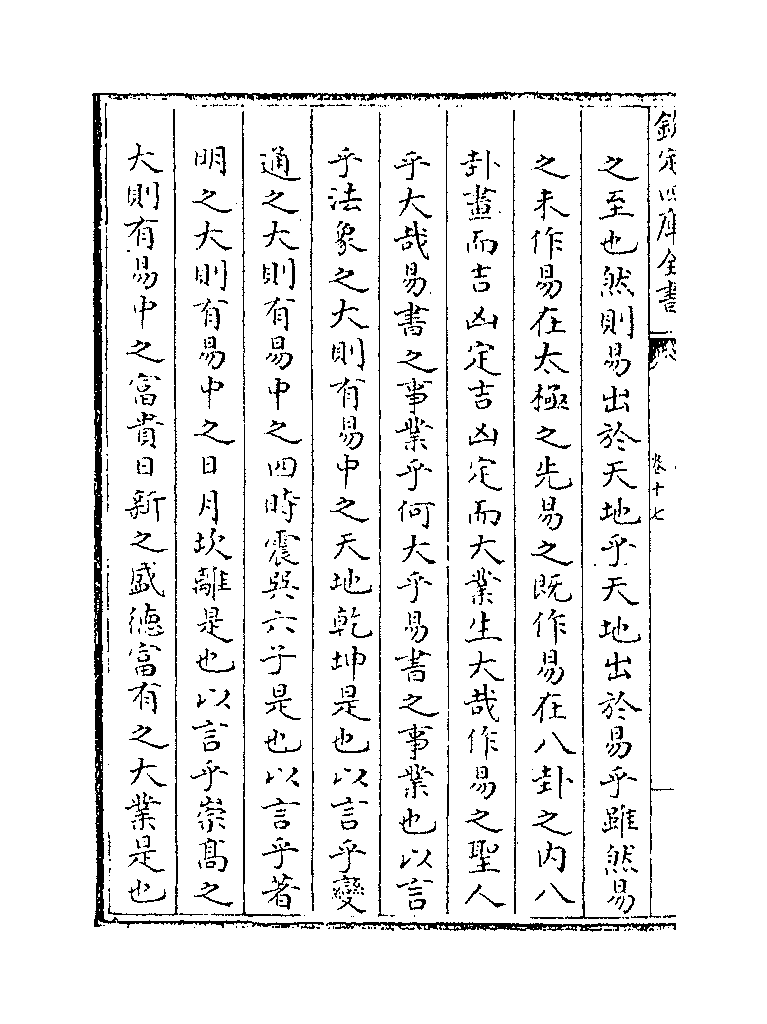 欽定四庫全書
卷十七
之至也然則易出於天地乎天地出於易乎雖然易
之未作易在太極之先易之既作易在八卦之内八
卦畫而吉凶定吉凶定而大業生大哉作易之聖人
乎大哉易書之事業乎何大乎易書之事業也以言
乎法象之大則有易中之天地乾坤是也以言乎變
通之大則有易中之四時震巽六子是也以言乎著
明之大則有易中之日月坎離是也以言乎崇髙之
大則有易中之富貴日新之盛德富有之大業是也